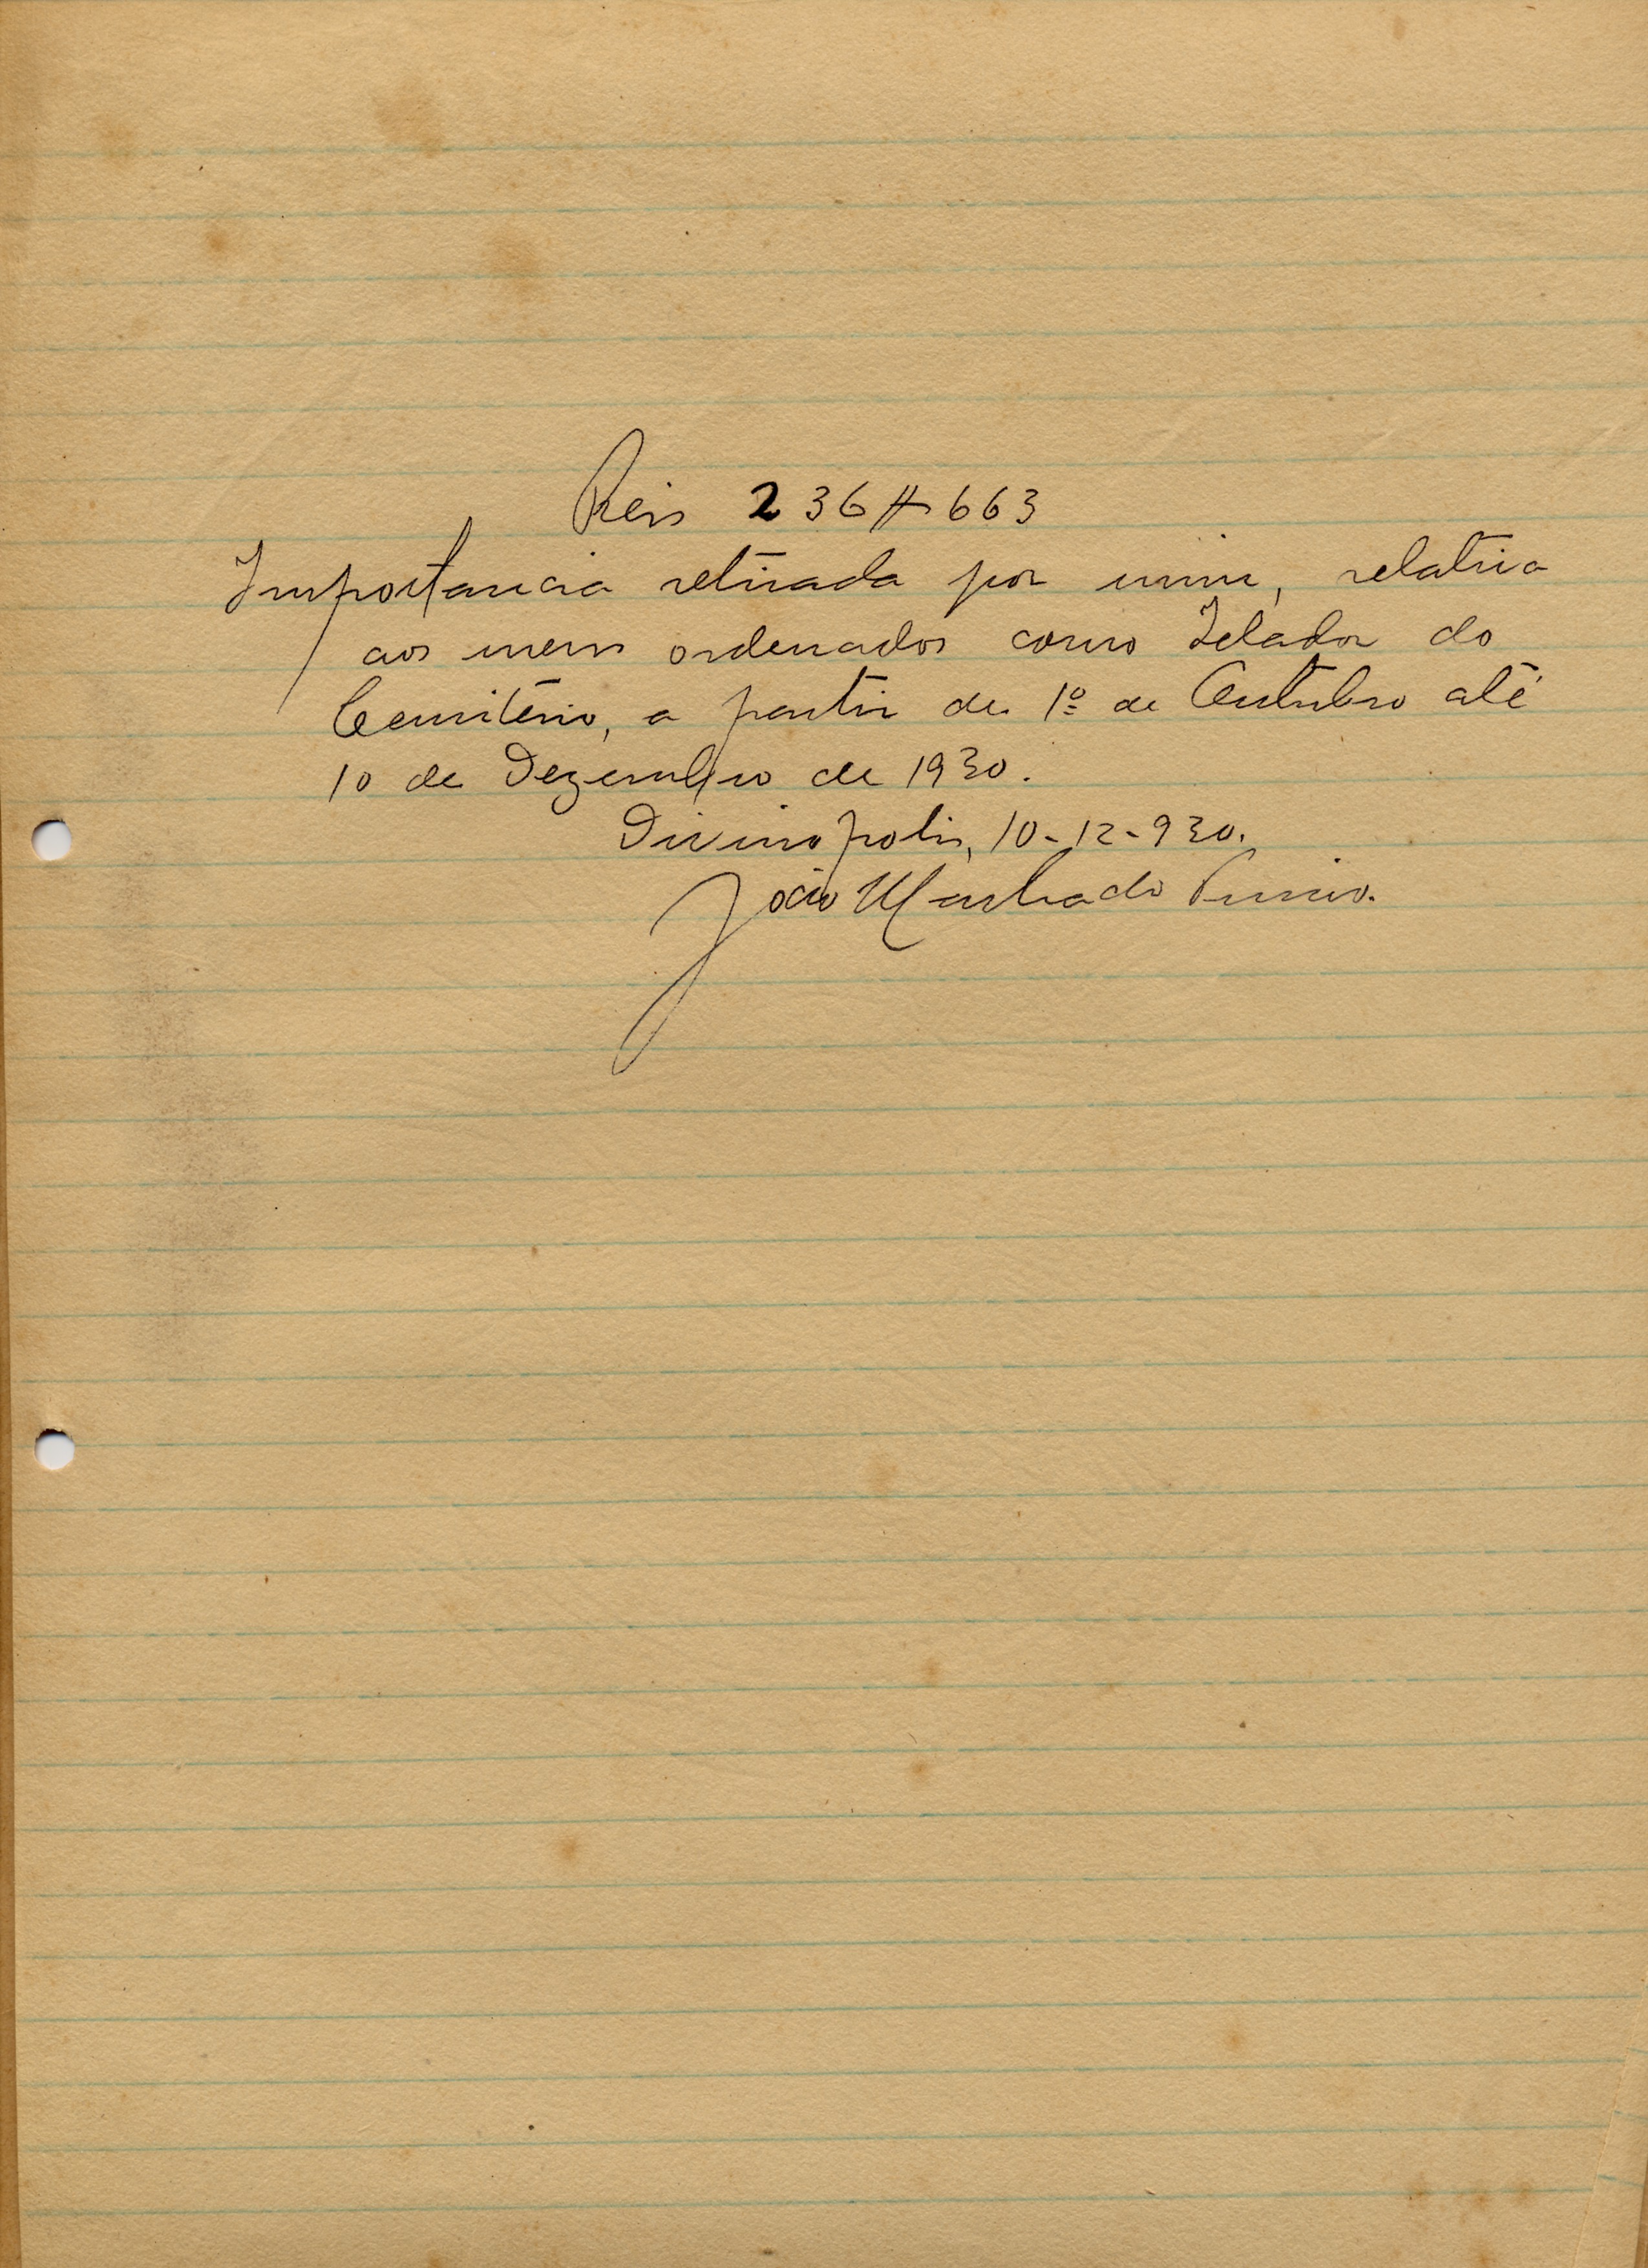 Reis 236$663
Importancia retirada por mim, relativa
aos meus ordenados como Zelador do
Cemitério, a partir de 1º de Outubro até
10 de Dezembro de 1930.
Divinopolis, 10-12-930.
João Machado